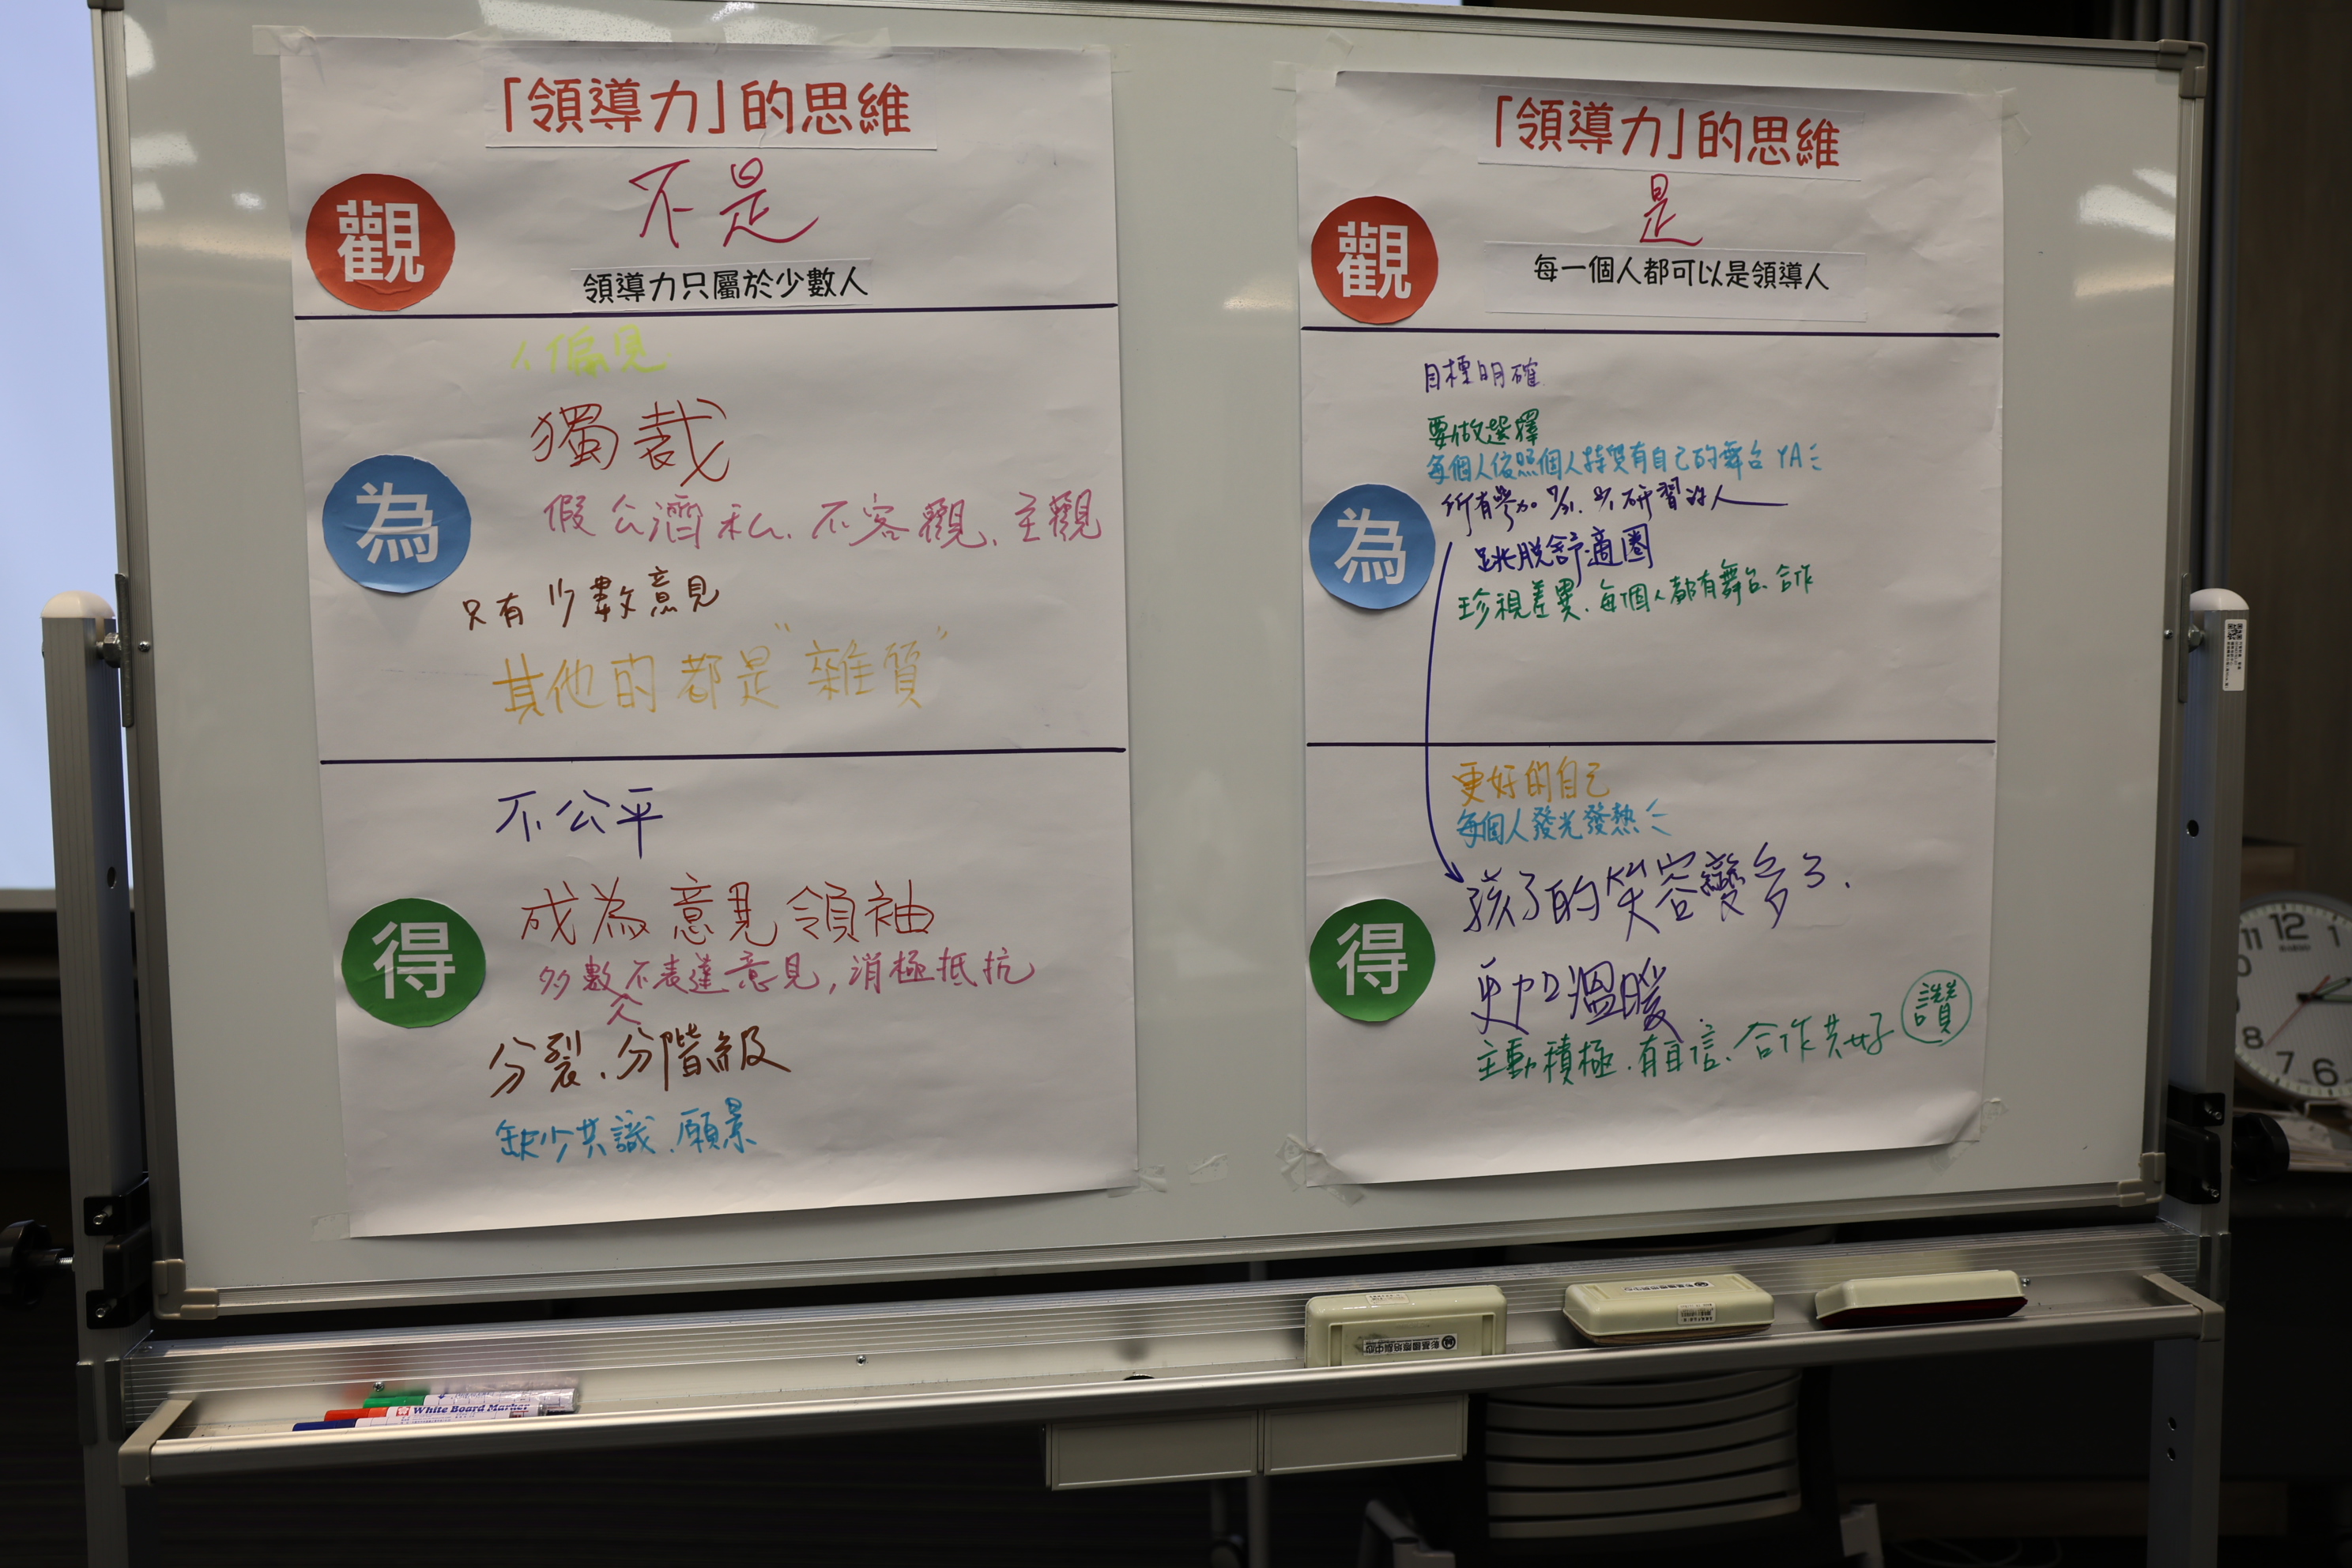 「領導力」的思維
不是
觀
領導力只屬於少數人
偏見
獨裁
假公濟私、不客觀、主觀
為
只有少數意見
其他的都是"雜質"
不公平
成為意見領袖
得
多數人不表達意見,消極抵抗
分裂、分階級
缺少共識、願景
「領導力」的思維
是
觀
每一個人都可以是領導人
目標明確
要做選擇
每個人依照個人特質有自己的舞台 YA
所有參加 研習的人
為
跳脫舒適圈
珍視差異、每個人都有舞台、合作
更好的自己
每個人發光發熱
孩子的笑容變多了.
得
更加溫暖
主動積極、有自信、合作共好 讚
White Board Marker
11 12 1
8 7 6